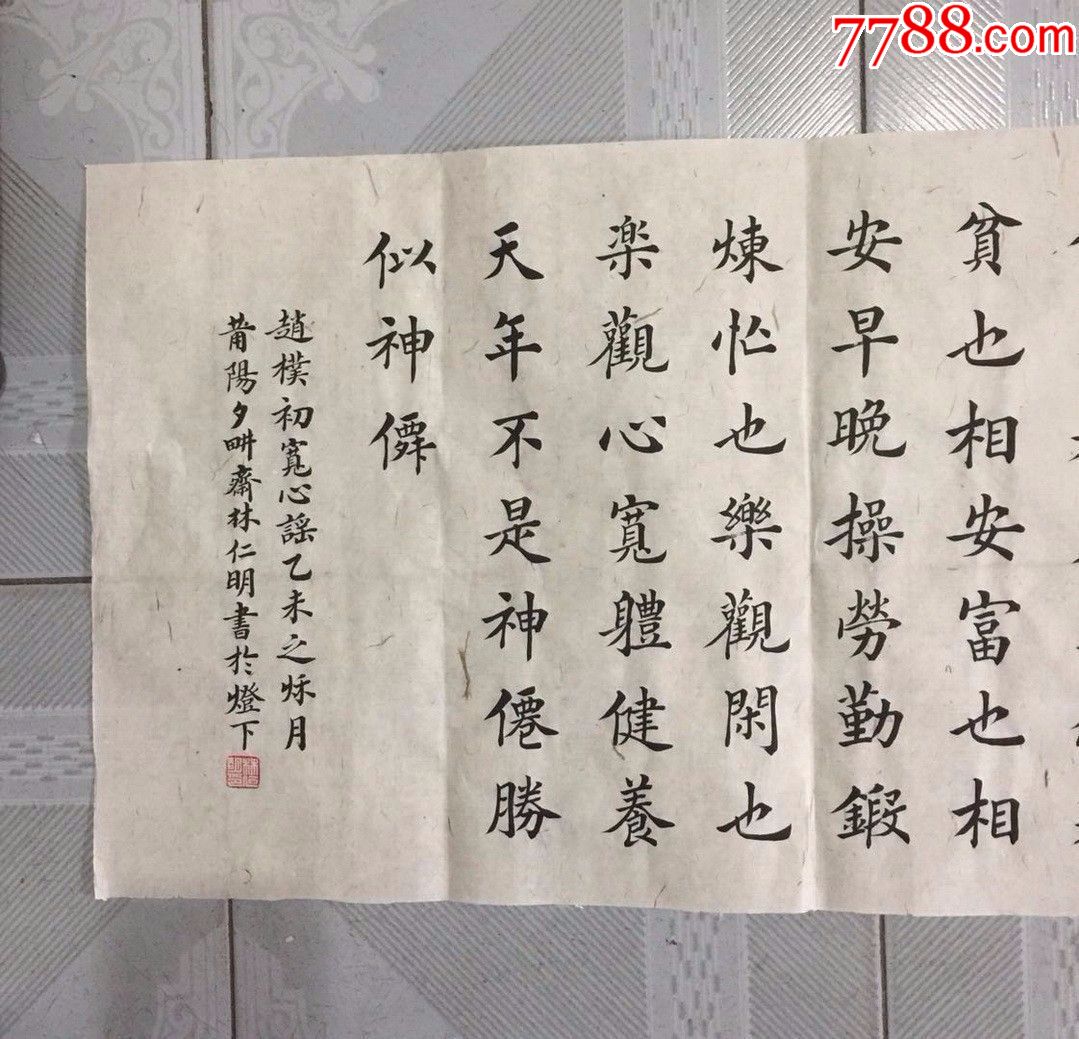 7788.com
貧也相安富也相
安早晚操勞勤鍛
煉忙也樂觀閑也
楽觀心寬體健養
天年不是神僊勝
似神僲
趙樸初寬心謠乙未之秌月
莆陽夕畊齋林仁明書於燈下